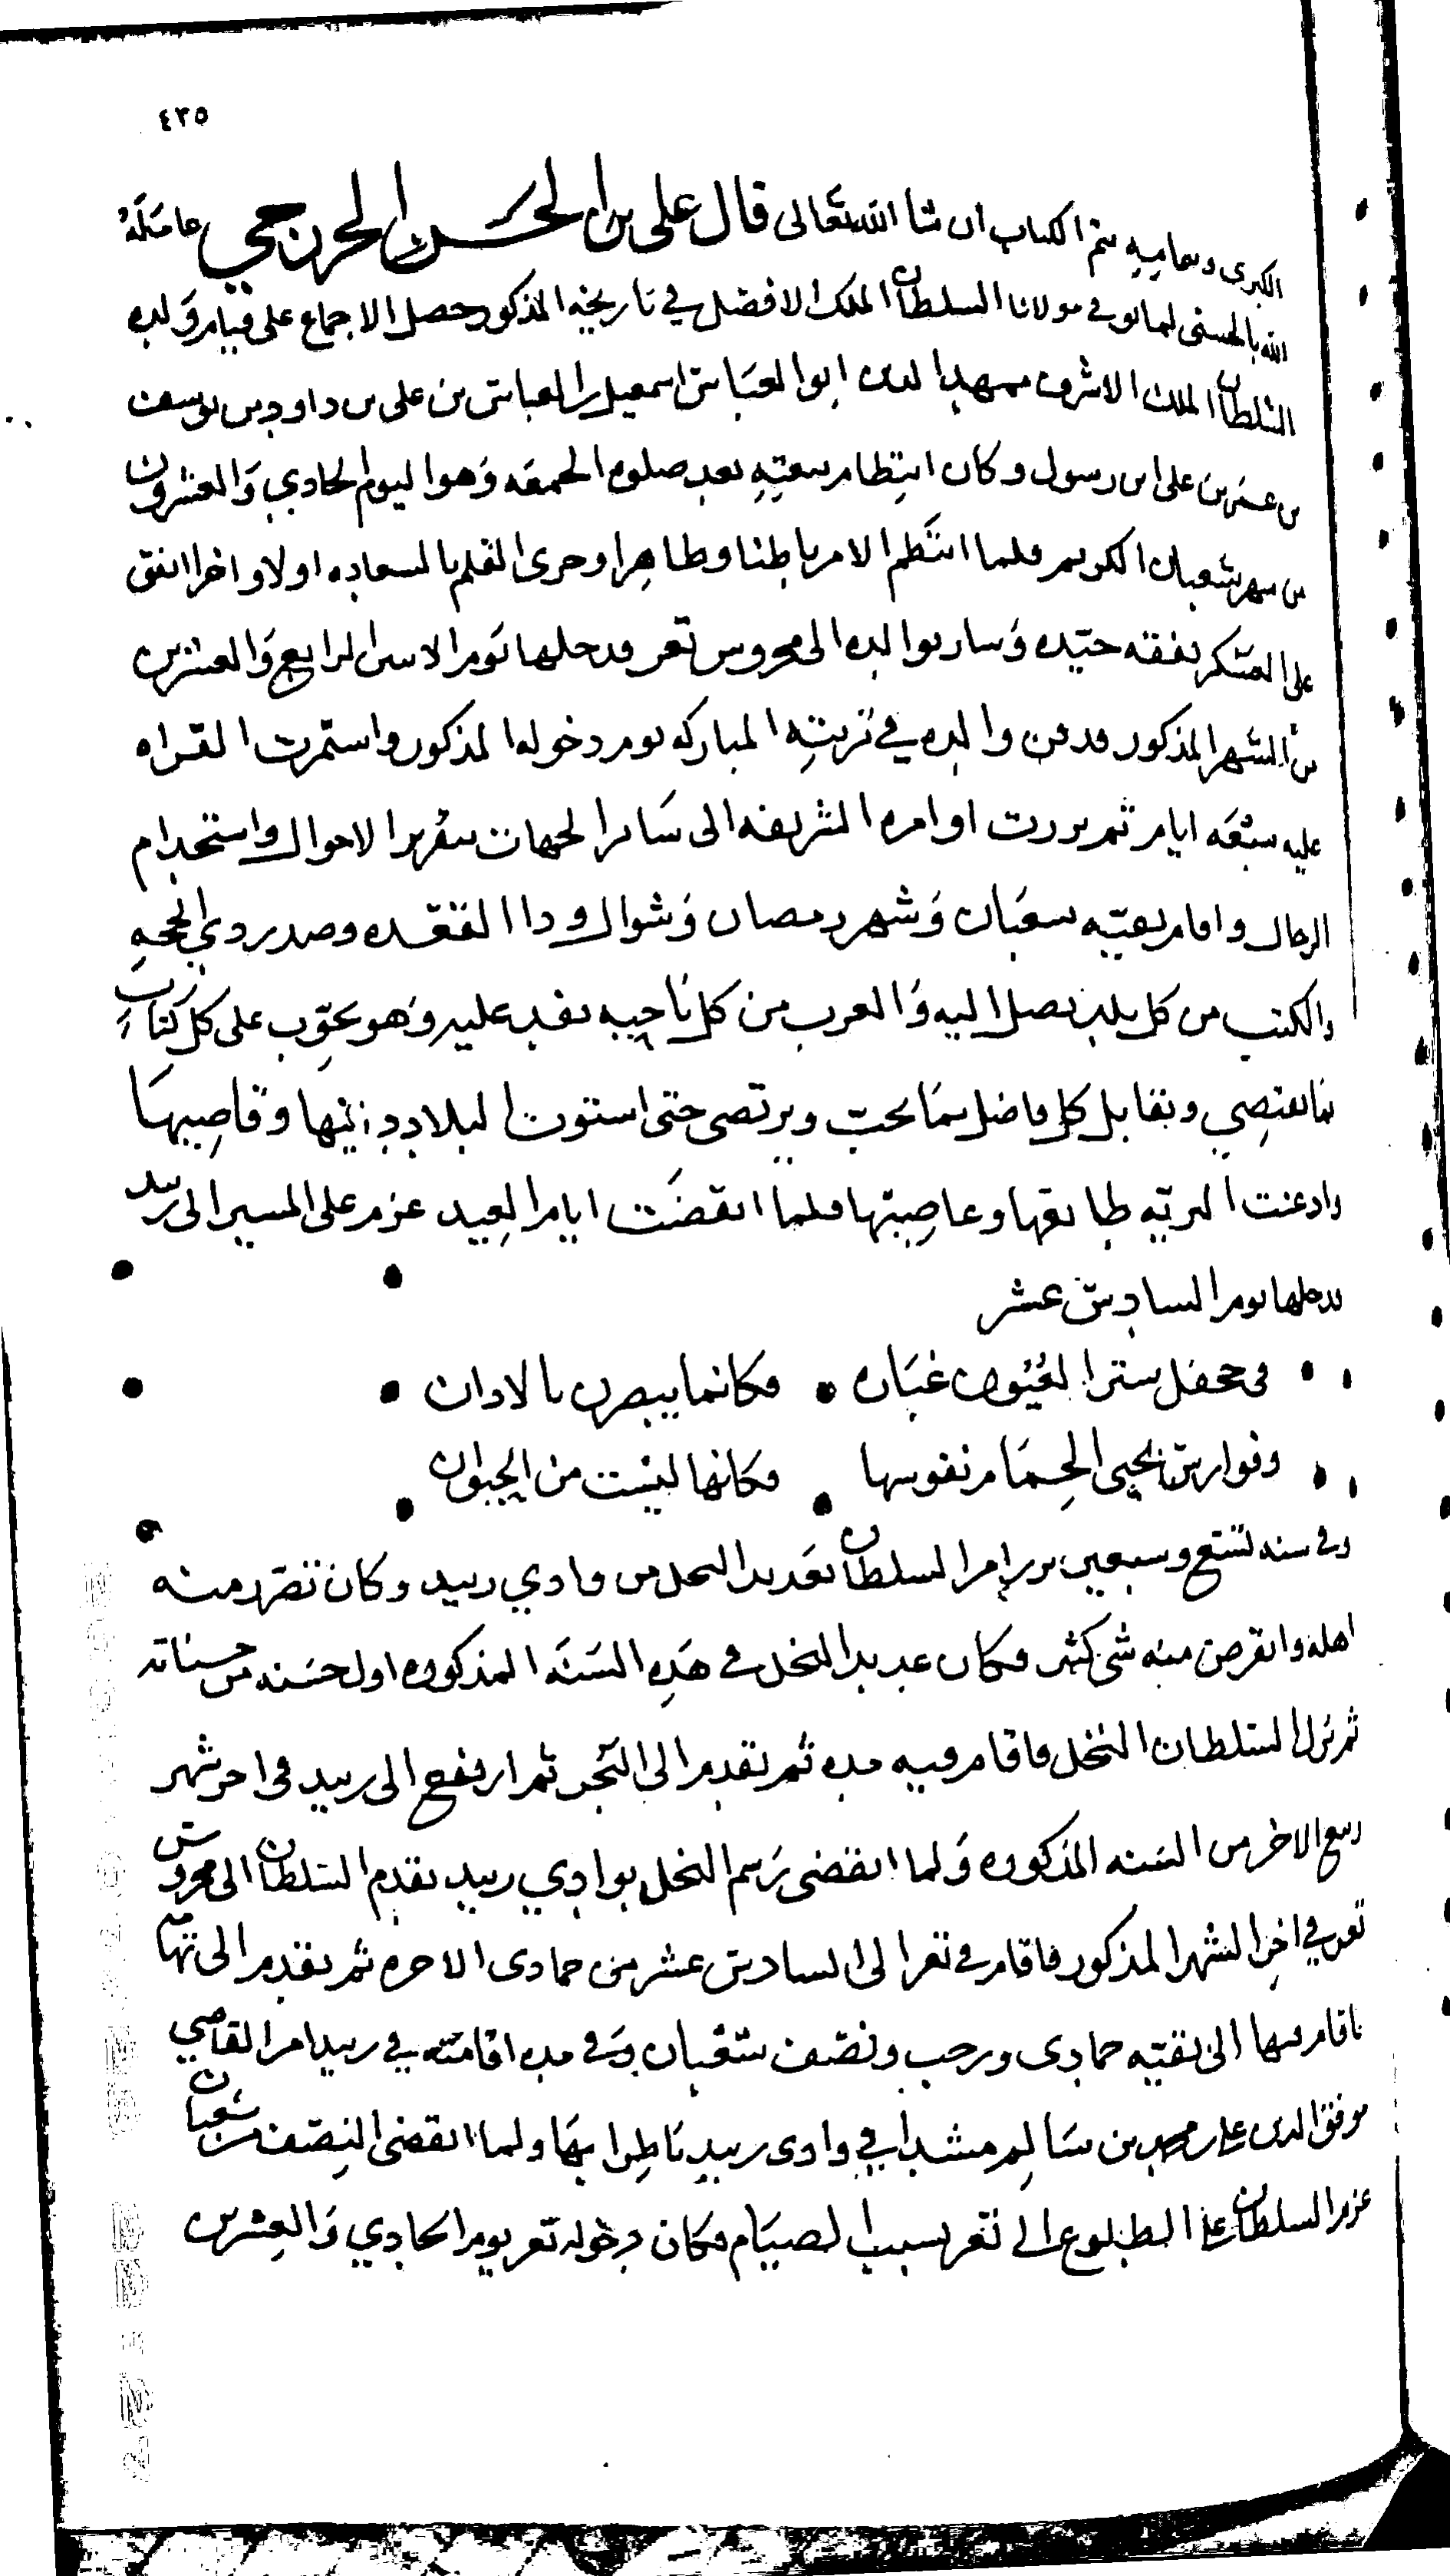 ٤٣٥
الكبرى وبتمامه يتم الكتاب ان شا الله تعالى قال على بن الحسن الخزرجي عامله
الله بالحسنى لما توفى مولانا السلطان الملك الافضل في تاريخه المذكور حصل الاجماع على قيام ولده
السلطان الملك الاشرف ممهد الدين ابو العباس اسمعيل بن العباس بن على بن داود بن يوسف
بن عمر بن على ابن رسول وكان انتظام بيعته بعد صلوه الجمعه وهو اليوم الحادي والعشرون
من شهر شعبان الكريم فلما انتظم الامر باطنا وظاهرا وجرى القلم بالسعاده اولا واخرا انفق
على العسكر نفقه جيده وسار بوالده الى محروس تعز فدخلها يوم الاثنين الرابع والعشرين
من الشهر المذكور فدفن والده في تربته المباركه يوم دخوله المذكور واستمرت القراه
عليه سبعه ايام ثم برزت اوامره الشريفه الى سائر الجهات بتقرير الاحوال واستخدام
الرجال واقام بقيه شعبان وشهر رمضان وشوال وذا القعده وصدر ذي الحجه
والكتب من كل بلد تصل اليه والعرب من كل ناحيه تفد عليه وهو يجوب على كل كتاب
بما يقتضي ويقابل كل فاضل بما يحب ويرتضى حتى استوت البلاد دانيها وقاصيها
واذعنت البريه طائعها وعاصيها فلما انقضت ايام العيد عزم على المسير الى زبيد
فدخلها يوم السادس عشر
في جحفل ستر العيون غباره فكانما يبصرن بالاذان
وفوارس يحيى الحمام نفوسها فكانها ليست من الحيوان
وفي سنه تسع وسبعين برز امر السلطان بعديد النخل من وادي زبيد وكان تضرر منه
اهله وانقرض منه شي كثير فكان عديد النخل في هذه السنه المذكوره اول حسنه من حسناته
ثم نزل السلطان النخل فاقام فيه مده ثم تقدم الى البحر ثم ارتفع الى زبيد في اخر شهر
ربيع الاخر من السنه المذكوره ولما انقضى رسم النخل بوادي زبيد تقدم السلطان الى محروس
تعز في اخر الشهر المذكور فاقام في تعز الى السادس عشر من جمادى الاخره ثم تقدم الى تهامه
فاقام فيها الى بقيه جمادى ورجب ونصف شعبان وفي مده اقامته في زبيد امر القاضي
موفق الدين على بن محمد بن سالم مشدا في وادى زبيد ناظرا بها ولما انقضى النصف من شعبان
عزم السلطان على الطلوع الى تعز بسبب الصيام فكان دخوله تعز يوم الحادي والعشرين